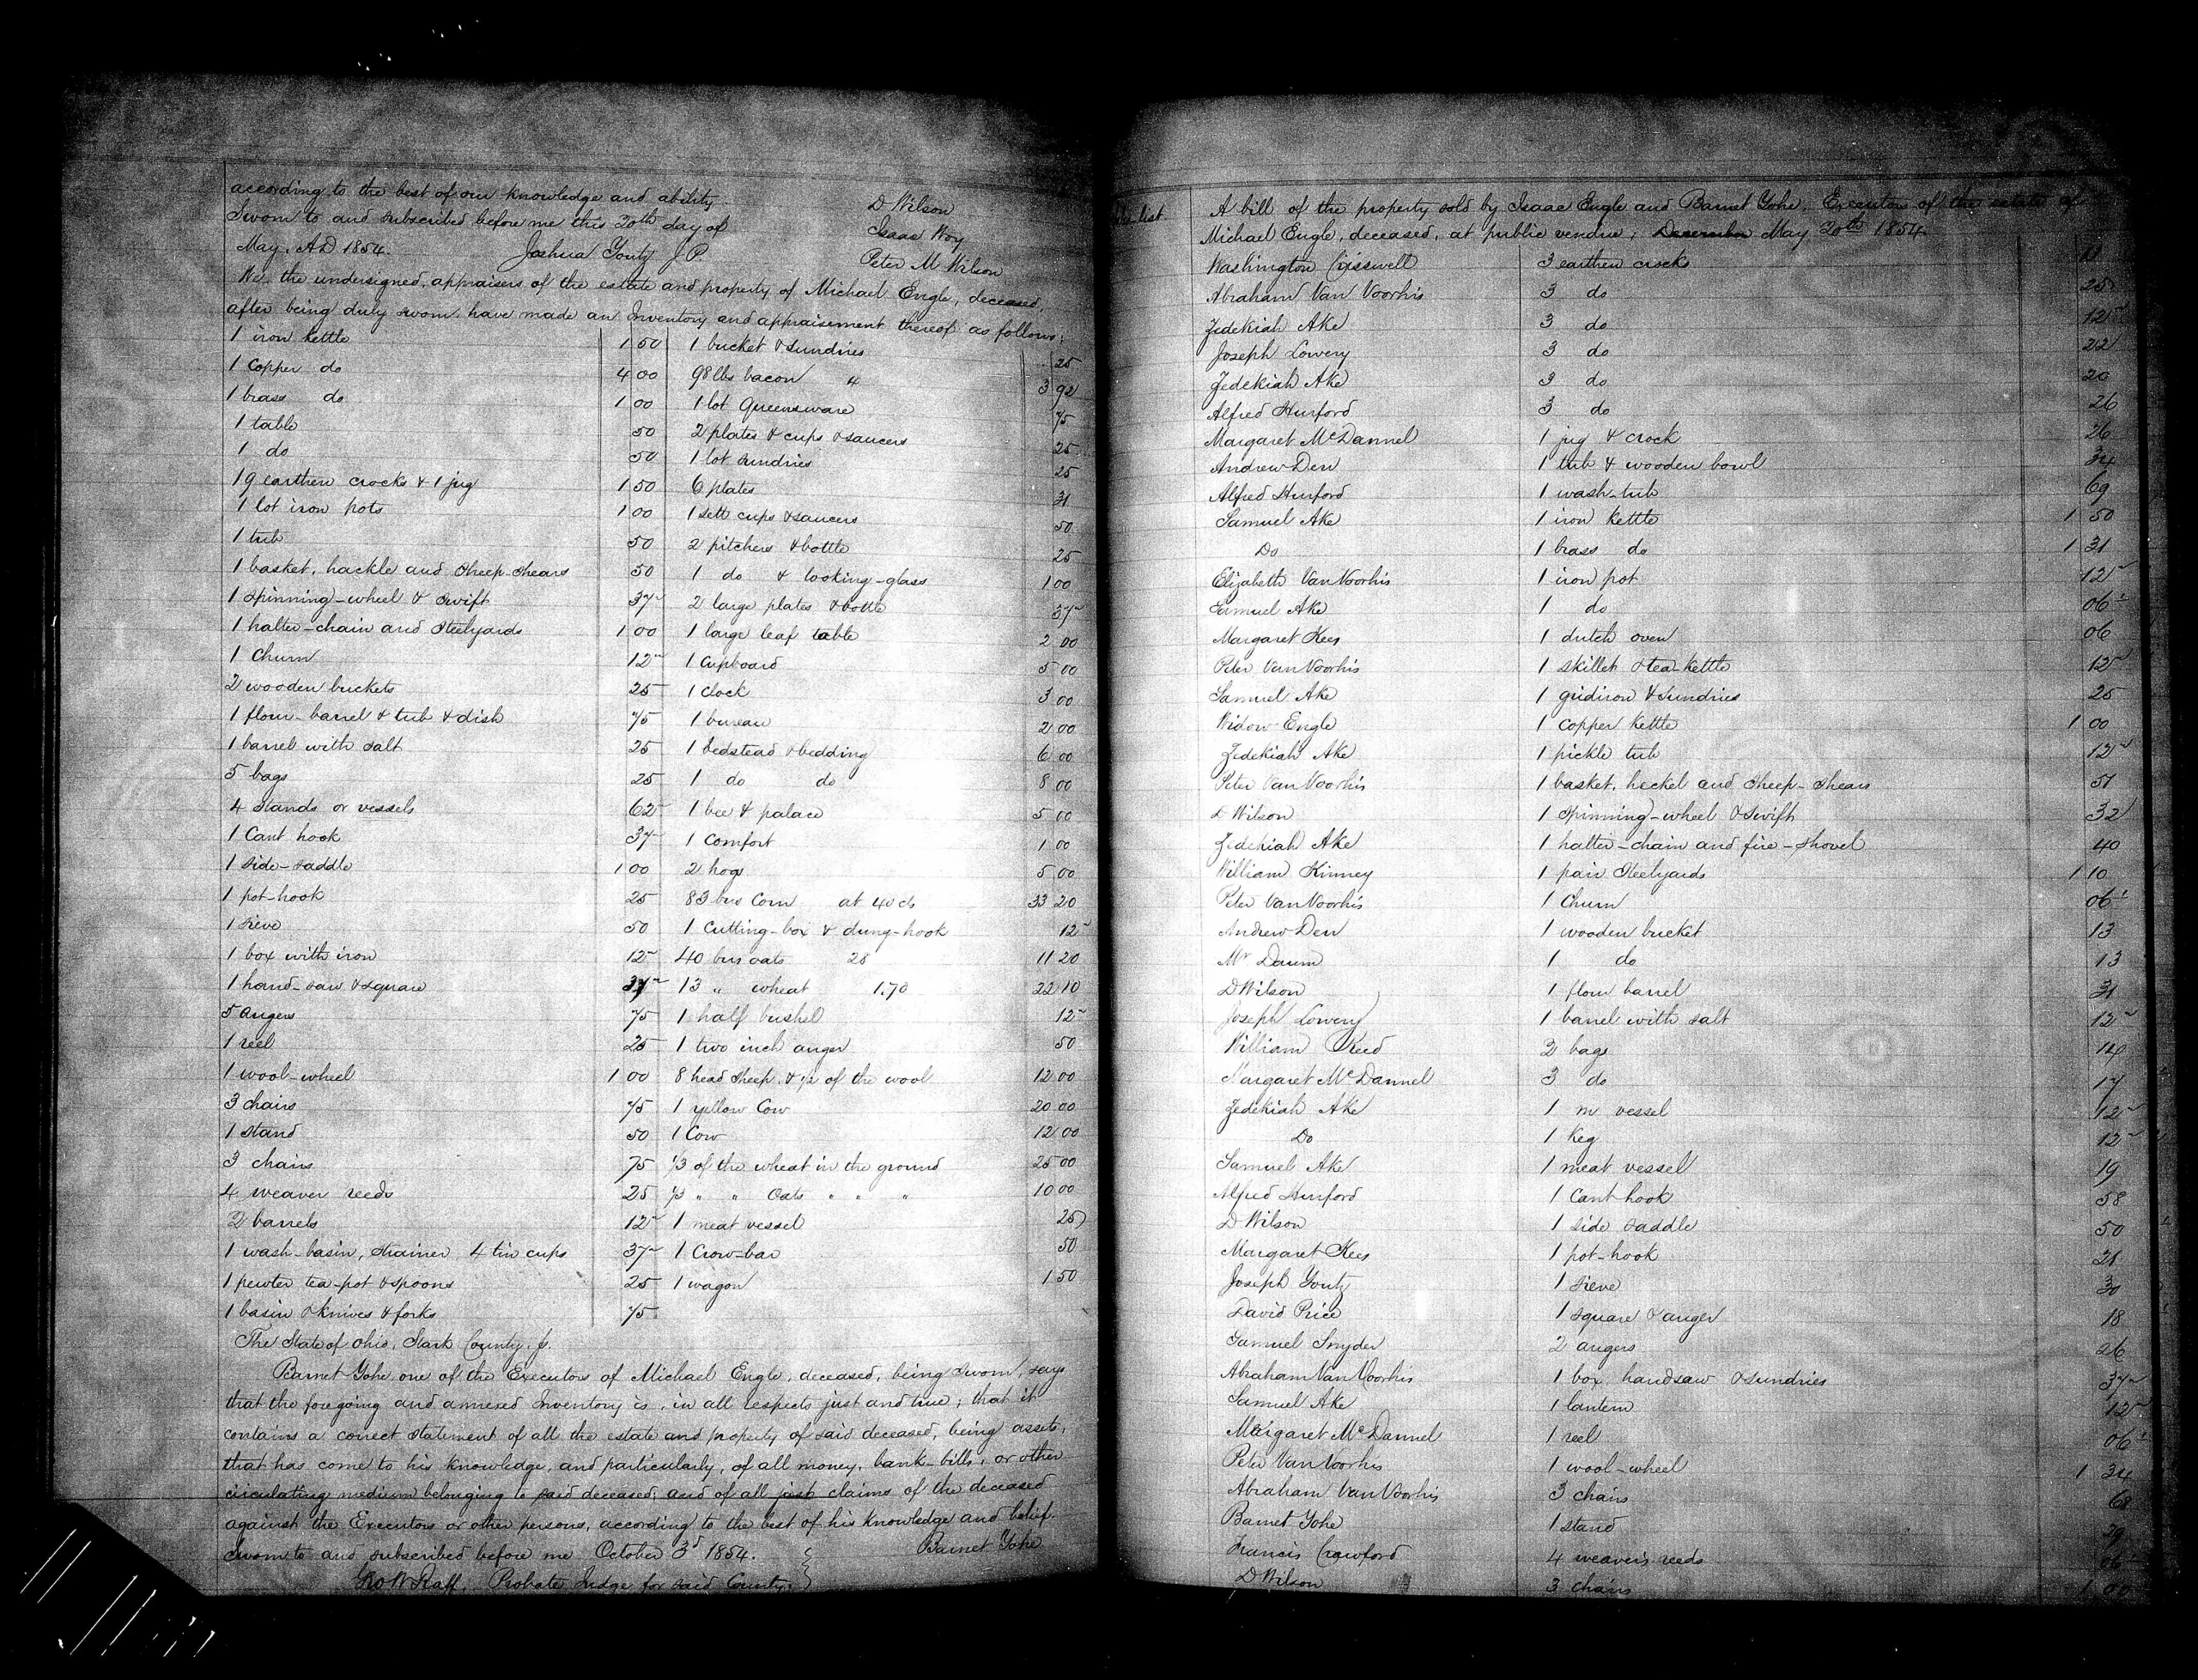 according to the best of our knowledge and ability.
D Wilson
Sworn to and subscribed before me this 20th day of
Isaac Woy
May, A.D 1854. Joshua Youtz J P.
Peter M Wilson
We, the undersigned, appraisers of the estate and property of Michael Engle, deceased,
after being duly sworn, have made an Inventory and appraisement thereof as follows:
1 iron kettle 1 50
1 copper do 4 00
1 brass do 1 00
1 table 50
1 do 50
19 earthen crocks & 1 jug 1 50
1 lot iron pots 1 00
1 tub 50
1 basket, hackle and sheep-shears 50
1 spinning-wheel & swift 37
1 halter-chain and steelyards 1 00
1 churn 12
2 wooden buckets 25
1 flour-barrel & tub & dish 75
1 barrel with salt 25
5 bags 25
4 stands or vessels 62
1 Cant hook 37
1 side-saddle 1 00
1 pot-hook 25
1 sieve 50
1 box with iron 12
1 hand-saw & square 37
5 augers 75
1 reel 25
1 wool-wheel 1 00
3 chairs 75
1 stand 50
3 chairs 75
4 weaver reeds 25
2 barrels 12
1 wash-basin, strainer 4 tin cups 37
1 pewter tea-pot & spoons 25
1 basin & knives & forks 75
1 bucket & sundries 25
98 lbs bacon 4 3 92
1 lot Queensware 75
2 plates & cups & saucers 25
1 lot sundries 25
6 plates 31
1 sett cups & saucers 50
2 pitchers & bottle 25
1 do & looking-glass 1 00
2 large plates & bottle 37
1 large leaf table 2 00
1 Cupboard 5 00
1 clock 3 00
1 bureau 2 00
1 bedstead & bedding 6 00
1 do do 8 00
1 bee & palace 5 00
1 Comfort 1 00
2 hogs 5 00
83 bus Corn at 40 cts 33 20
1 Cutting-box & dung-hook 12
40 bus oats 28 11 20
13 " wheat 1.70 22 10
1 half bushel 12
1 two inch auger 50
8 head sheep, & 1/2 of the wool 12 00
1 yellow Cow 20 00
1 Cow 12 00
1/3 of the wheat in the ground 25 00
1/3 " " Oats " " " 10 00
1 meat vessel 25
1 Crow-bar 50
1 wagon 1 50
The State of Ohio, Stark County, ss.
Barnet Yohe, one of the Executors of Michael Engle, deceased, being sworn, says
that the foregoing and annexed Inventory is, in all respects just and true; that it
contains a correct statement of all the estate and property of said deceased, being assets,
that has come to his knowledge, and particularly, of all money, bank-bills, or other
circulating medium belonging to said deceased, and of all just claims of the deceased
against the Executors or other persons, according to the best of his knowledge and belief.
Sworn to and subscribed before me October 3d 1854. Barnet Yohe
Geo W Raff, Probate Judge for said County.
list
A bill of the property sold by Isaac Engle and Barnet Yohe, Executors of the estate of
Michael Engle, deceased, at public vendue, December May 20th 1854.
Washington Crisswell 3 earthen crocks 11
Abraham Van Voorhis 3 do 25
Zedekiah Ake 3 do 12
Joseph Lowery 3 do 22
Zedekiah Ake 3 do 20
Alfred Hurford 3 do 26
Margaret McDannel 1 jug & crock 26
Andrew Den 1 tub & wooden bowl 34
Alfred Hurford 1 wash-tub 69
Samuel Ake 1 iron kettle 1 50
Do 1 brass do 1 31
Elizabeth VanVoorhis 1 iron pot 12
Samuel Ake 1 do 06
Margaret Kees 1 dutch oven 06
Peter VanVoorhis 1 skillet & tea-kettle 12
Samuel Ake 1 gridiron & sundries 25
Widow Engle 1 copper kettle 1 00
Zedekiah Ake 1 pickle tub 12
Peter VanVoorhis 1 basket, heckel and sheep-shears 51
D Wilson 1 spinning-wheel & swift 32
Zedekiah Ake 1 halter-chain and fire-shovel 40
William Kinney 1 pair Steelyards 1 10
Peter VanVoorhis 1 Churn 06
Andrew Den 1 wooden bucket 13
Mr Daum 1 do 13
D Wilson 1 flour barrel 31
Joseph Lowery 1 barrel with salt 12
William Reed 2 bags 14
Margaret McDannel 3 do 17
Zedekiah Ake 1 m vessel 12
Do 1 Keg 12
Samuel Ake 1 meat vessel 19
Alfred Hurford 1 Cant-hook 58
D Wilson 1 side saddle 50
Margaret Kees 1 pot-hook 21
Joseph Youtz 1 sieve 30
David Price 1 square & auger 18
Samuel Snyder 2 augers 26
Abraham VanVoorhis 1 box, handsaw & sundries 37
Samuel Ake 1 lantern 12
Margaret McDannel 1 reel 06
Peter VanVoorhis 1 wool-wheel 1 34
Abraham VanVoorhis 3 chairs 68
Barnet Yohe 1 stand 29
Francis Crawford 4 weaver's reeds 06
D Wilson 3 chairs 1 00